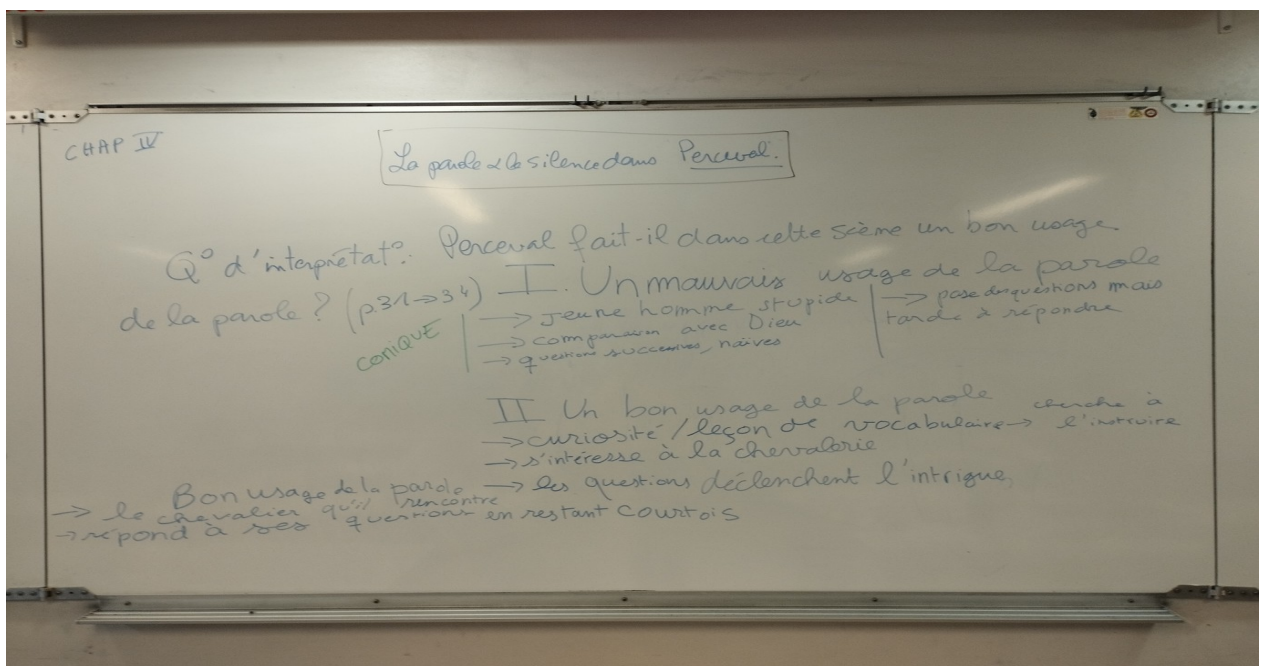 CHAP IV
La parole & le silence dans Perceval.
Q° d'interprétat°: Perceval fait-il dans cette scène un bon usage
de la parole? (p.31→34)
I. Un mauvais usage de la parole
→ jeune homme stupide
→ comparaison avec Dieu
→ questions successives, naïves
COMIQUE
→ pose des questions mais
tarde à répondre
II Un bon usage de la parole
→ curiosité / leçon de vocabulaire → cherche à
s'instruire
→ s'intéresse à la chevalerie
→ les questions déclenchent l'intrigue,
Bon usage de la parole
→ le chevalier qu'il rencontre
→ répond à ses questions en restant courtois